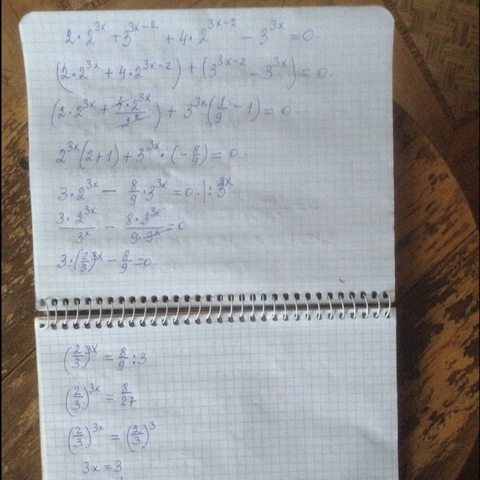 2·2^{3x} + 3^{3x-2} + 4·2^{3x-2} - 3^{3x} = 0.
(2·2^{3x} + 4·2^{3x-2}) + (3^{3x-2} - 3^{3x}) = 0.
(2·2^{3x} + \frac{4·2^{3x}}{2^2}) + 3^{3x}(\frac{1}{9} - 1) = 0.
2^{3x}(2+1) + 3^{3x}·(-\frac{8}{9}) = 0.
3·2^{3x} - \frac{8}{9}·3^{3x} = 0. | : 3^{3x}
\frac{3·2^{3x}}{3^{3x}} - \frac{8·3^{3x}}{9·3^{3x}} = 0
3·(\frac{2}{3})^{3x} - \frac{8}{9} = 0.
(\frac{2}{3})^{3x} = \frac{8}{9} : 3
(\frac{2}{3})^{3x} = \frac{8}{27}
(\frac{2}{3})^{3x} = (\frac{2}{3})^3
3x = 3